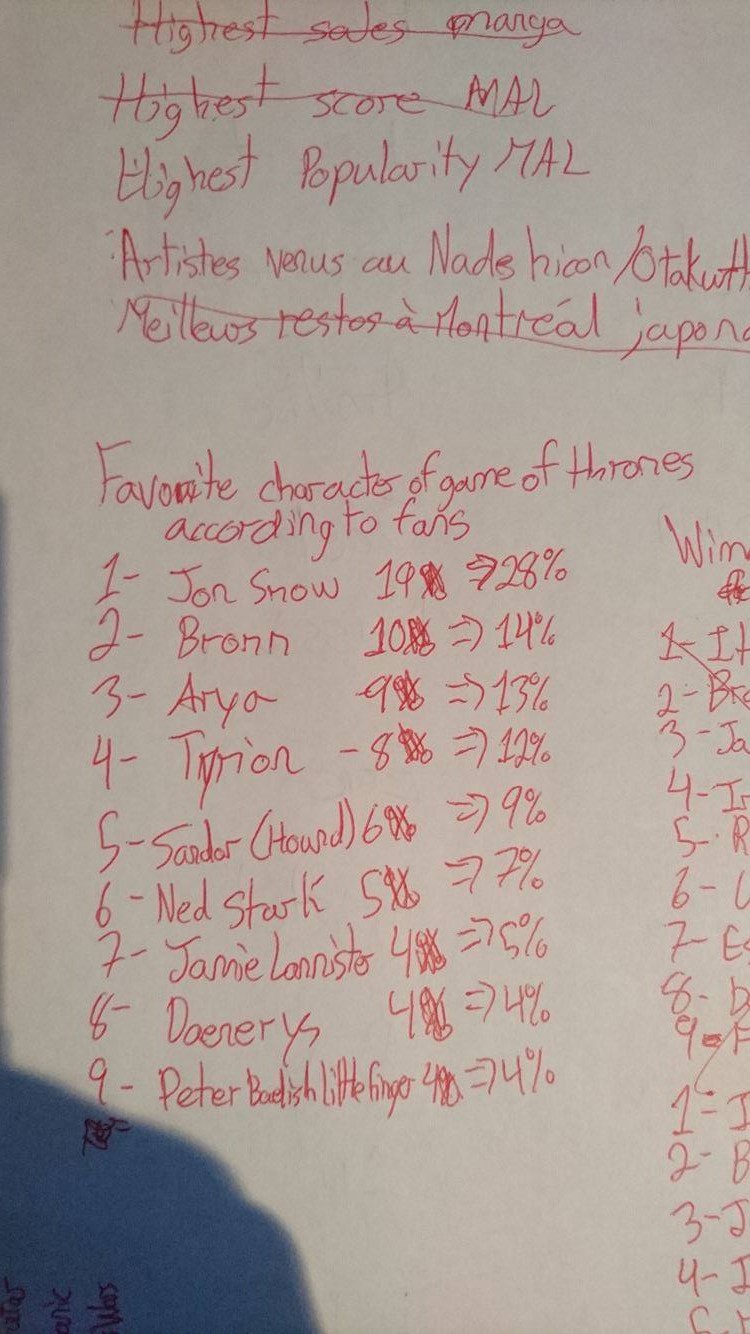 Highest sales manga
Highest score MAL
Highest Popularity MAL
Artistes venus au Nadeshicon/Otakuth
Meilleurs restos à Montréal japona
Favorite character of game of thrones
according to fans
1- Jon Snow 19 => 28%
2- Bronn 10 => 14%
3- Arya 9 => 13%
4- Tyrion - 8 => 12%
5- Sandor (Hound) 6 => 9%
6- Ned Stark 5 => 7%
7- Jamie Lannister 4 => 5%
8- Daenerys 4 => 4%
9- Peter Baelish littlefinger 4 => 4%
Winn
1- It
2- Bra
3- Ja
4- Ir
5- R
6- U
7- Es
8- D
9- F
1- I
2- B
3- J
4- I